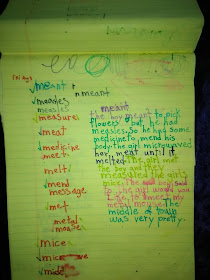 meant r
meant
measles
measles
measure
meat
medicine
meet
melt
mend
message
met
metal
mice
mice
meant
the boy meant to pick
flowers, but, he had
measles. So he has some
medicine to mend his
body. the girl microwaved
her meat until it
melted. The girl met
the boy and they
measured the girls
mice. The boy said
the girl would
like to meet my
metal mouse. The
middle of town
was very pretty.